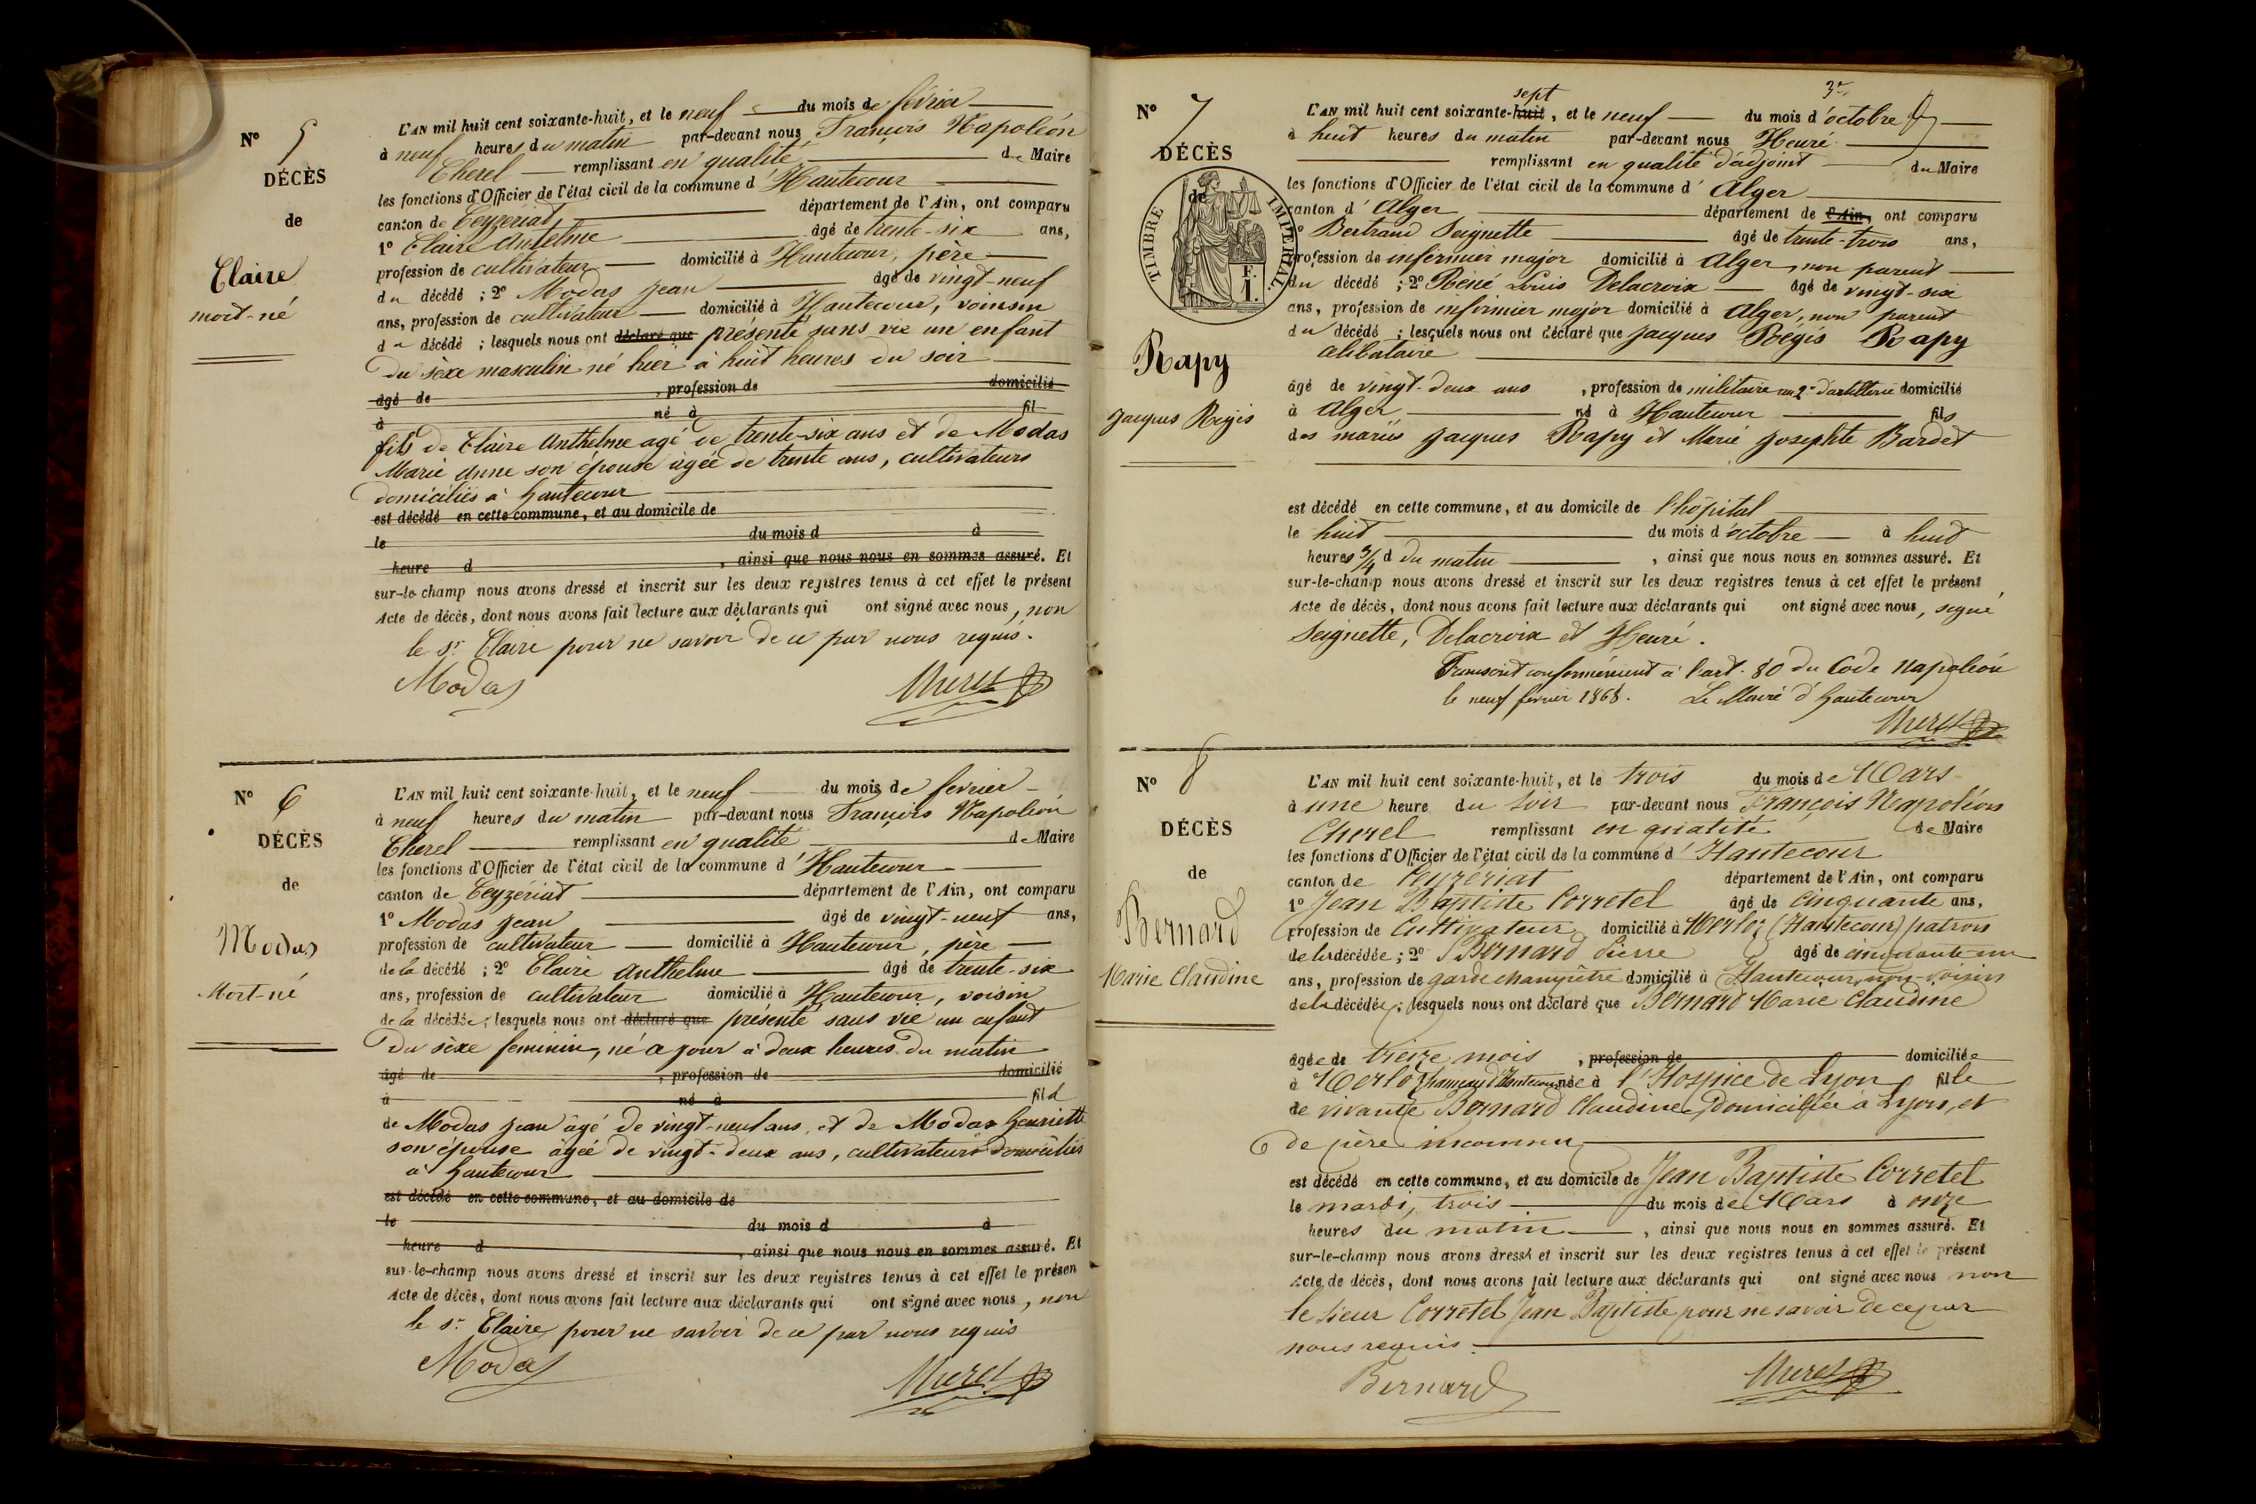 N° 5
DÉCÈS
de
Claire
mort-né
L'AN mil huit cent soixante-huit, et le neuf du mois de février
à neuf heures du matin par-devant nous François Napoléon
Cherel remplissant en qualité de Maire
les fonctions d'Officier de l'état civil de la commune d'Hautecour
canton de Ceyzeriat département de l'Ain, ont comparu
1° Claire Antelme âgé de trente-six ans,
profession de cultivateur domicilié à Hautecour, père
du décédé ; 2° Modas Jean âgé de vingt-neuf
ans, profession de cultivateur domicilié à Hautecour, voinsin
du décédé ; lesquels nous ont déclaré que présenté sans vie un enfant
du sèxe masculin né hier à huit heures du soir
âgé de , profession de domicilié
à né à fil
fils de Claire Anthelme agé de trente-six ans et de Modas
Marie Anne son épouse âgée de trente ans, cultivateurs
domiciliés à hautecour
est décédé en cette commune, et au domicile de
le du mois d à
heure d , ainsi que nous nous en sommes assuré. Et
sur-le-champ nous avons dressé et inscrit sur les deux registres tenus à cet effet le présent
Acte de décès, dont nous avons fait lecture aux déclarants qui ont signé avec nous, non
le sr Claire pour ne savoir de ce par nous requis.
Modas
N° 6
DÉCÈS
de
Modas
Mort-né
L'AN mil huit cent soixante-huit, et le neuf du mois de fevrier
à neuf heures du matin par-devant nous François Napoléon
Cherel remplissant en qualité de Maire
les fonctions d'Officier de l'état civil de la commune d'Hautecour
canton de Ceyzériat département de l'Ain, ont comparu
1° Modas Jean âgé de vingt-neuf ans,
profession de cultivateur domicilié à Hautecour, père
de la décédé ; 2° Claire Anthelme âgé de trente-six
ans, profession de cultivateur domicilié à Hautecour, voisin
de la décédée ; lesquels nous ont déclaré que présenté sans vie un enfant
du sèxe feminin, né ce jour à deux heures du matin
âgé de , profession de domicilié
à né à fil
de Modas Jean âgé de vingt-neuf ans, et de Modas henriette
son épouse âgée de vingt-deux ans, cultivateurs domiciliés
à hautecour
est décédé en cette commune, et au domicile de
le du mois d à
heure d , ainsi que nous nous en sommes assuré. Et
sur-le-champ nous avons dressé et inscrit sur les deux registres tenus à cet effet le présen
Acte de décès, dont nous avons fait lecture aux déclarants qui ont signé avec nous, non
le sr Claire pour ne savoir de ce par nous requis
Modas
N° 7
DÉCÈS
de
TIMBRE IMPERIAL
F. 1.
Rapy
Jacques Régis
L'AN mil huit cent soixante-huit sept, et le neuf du mois d'octobre
à huit heures du matin par-devant nous Heuré
remplissant en qualité d'adjoint du Maire
les fonctions d'Officier de l'état civil de la commune d'Alger
canton d'Alger département de l'Ain, ont comparu
1° Bertrand Seignette âgé de trente-trois ans,
profession de infirmier major domicilié à Alger, non parent
du décédé ; 2° Réné Louis Delacroix âgé de vingt-six
ans, profession de infirmier major domicilié à Alger, non parent
du décédé ; lesquels nous ont déclaré que Jacques Régis Rapy
célibataire
âgé de vingt-deux ans , profession de militaire au 2e d'artillerie domicilié
à Alger né à Hautecour fils
des mariés Jacques Rapy et Marie Josephte Bardet
est décédé en cette commune, et au domicile de l'hôpital
le huit du mois d'octobre à huit
heures 3/4 d du matin , ainsi que nous nous en sommes assuré. Et
sur-le-champ nous avons dressé et inscrit sur les deux registres tenus à cet effet le présent
Acte de décès, dont nous avons fait lecture aux déclarants qui ont signé avec nous, signé
Seignette, Delacroix et Heuré.
Transcrit conformément à l'art. 80 du Code Napoléon
le neuf février 1868. Le Maire d'hautecour
N° 8
DÉCÈS
de
Bernard
Marie Claudine
L'AN mil huit cent soixante-huit, et le trois du mois de Mars
à une heure du soir par-devant nous François Napoléon
Cherel remplissant en qualité de Maire
les fonctions d'Officier de l'état civil de la commune d'Hautecour
canton de Ceyzériat département de l'Ain, ont comparu
1° Jean Baptiste Corretel âgé de cinquante ans,
profession de Cultivateur domicilié à Merloz (Hautecour) patron
de la décédée ; 2° Bernard Pierre âgé de cinquante-un
ans, profession de garde champêtre domicilié à Hautecour, non-voisin
de la décédée ; lesquels nous ont déclaré que Bernard Marie Claudine
âgée de treize mois , profession de domiciliée
à Merloz hameau d'Hautecour née à l'Hospice de Lyon fille
de vivante Bernard Claudine, domiciliée à Lyon, et
de père inconnu
est décédé en cette commune, et au domicile de Jean Baptiste Corretel
le mardi, trois du mois de Mars à onze
heures du matin , ainsi que nous nous en sommes assuré. Et
sur-le-champ nous avons dressé et inscrit sur les deux registres tenus à cet effet le présent
Acte de décès, dont nous avons fait lecture aux déclarants qui ont signé avec nous non
le sieur Corretel Jean Baptiste pour ne savoir de ce par
nous requis.
Bernard